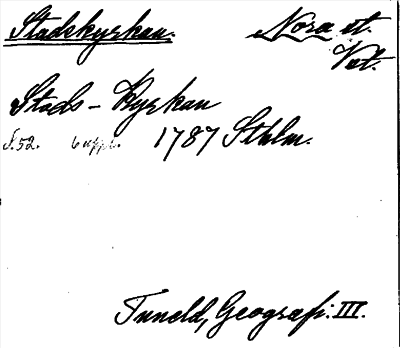 Stadskyrkan. Nora st.
Vst.
Stads-Kyrkan
S. 52. 6 uppl. 1787 Sthlm.
Tuneld, Geografi. III.